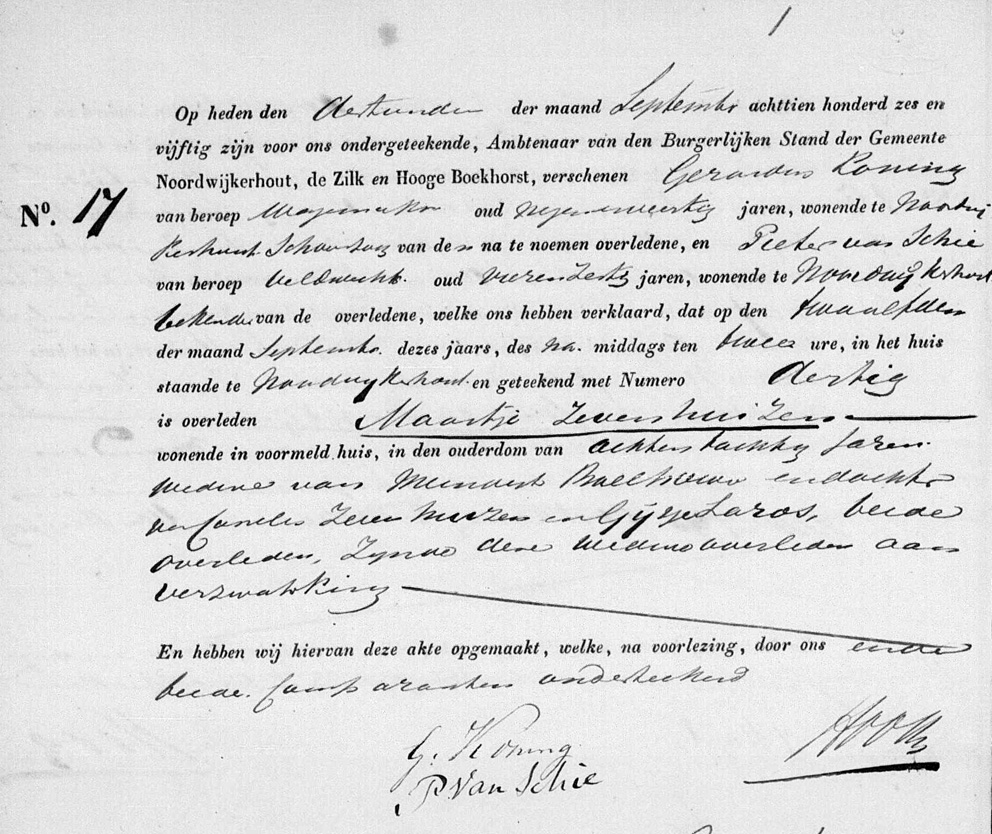 1
Op heden den Dertienden der maand September achttien honderd zes en
vijftig zijn voor ons ondergeteekende, Ambtenaar van den Burgerlijken Stand der Gemeente
Noordwijkerhout, de Zilk en Hooge Boekhorst, verschenen Gerardus Koning
No. 17
van beroep Wagemaker oud negenenveertig jaren, wonende te Noordwij
kerhout Schoonzoon van den na te noemen overledene, en Pieter van Schie
van beroep veldwachter oud vierenzestig jaren, wonende te Noordwijkerhout
bekende van de overledene, welke ons hebben verklaard, dat op den twaalfden
der maand September dezes jaars, des na middags ten twee ure, in het huis
staande te Noordwijkerhout en geteekend met Numero dertig
is overleden Maartje Zevenhuizen
wonende in voormeld huis, in den ouderdom van achtentachtig Jaren
weduwe van Meindert en dochter
van Cornelis Zevenhuizen en Gijsje beide
overleden, Zijnde deze weduwe overleden aan
verzwakking
En hebben wij hiervan deze akte opgemaakt, welke, na voorlezing, door ons en de
beide Comparanten onderteekend
G. Koning
P Van Schie